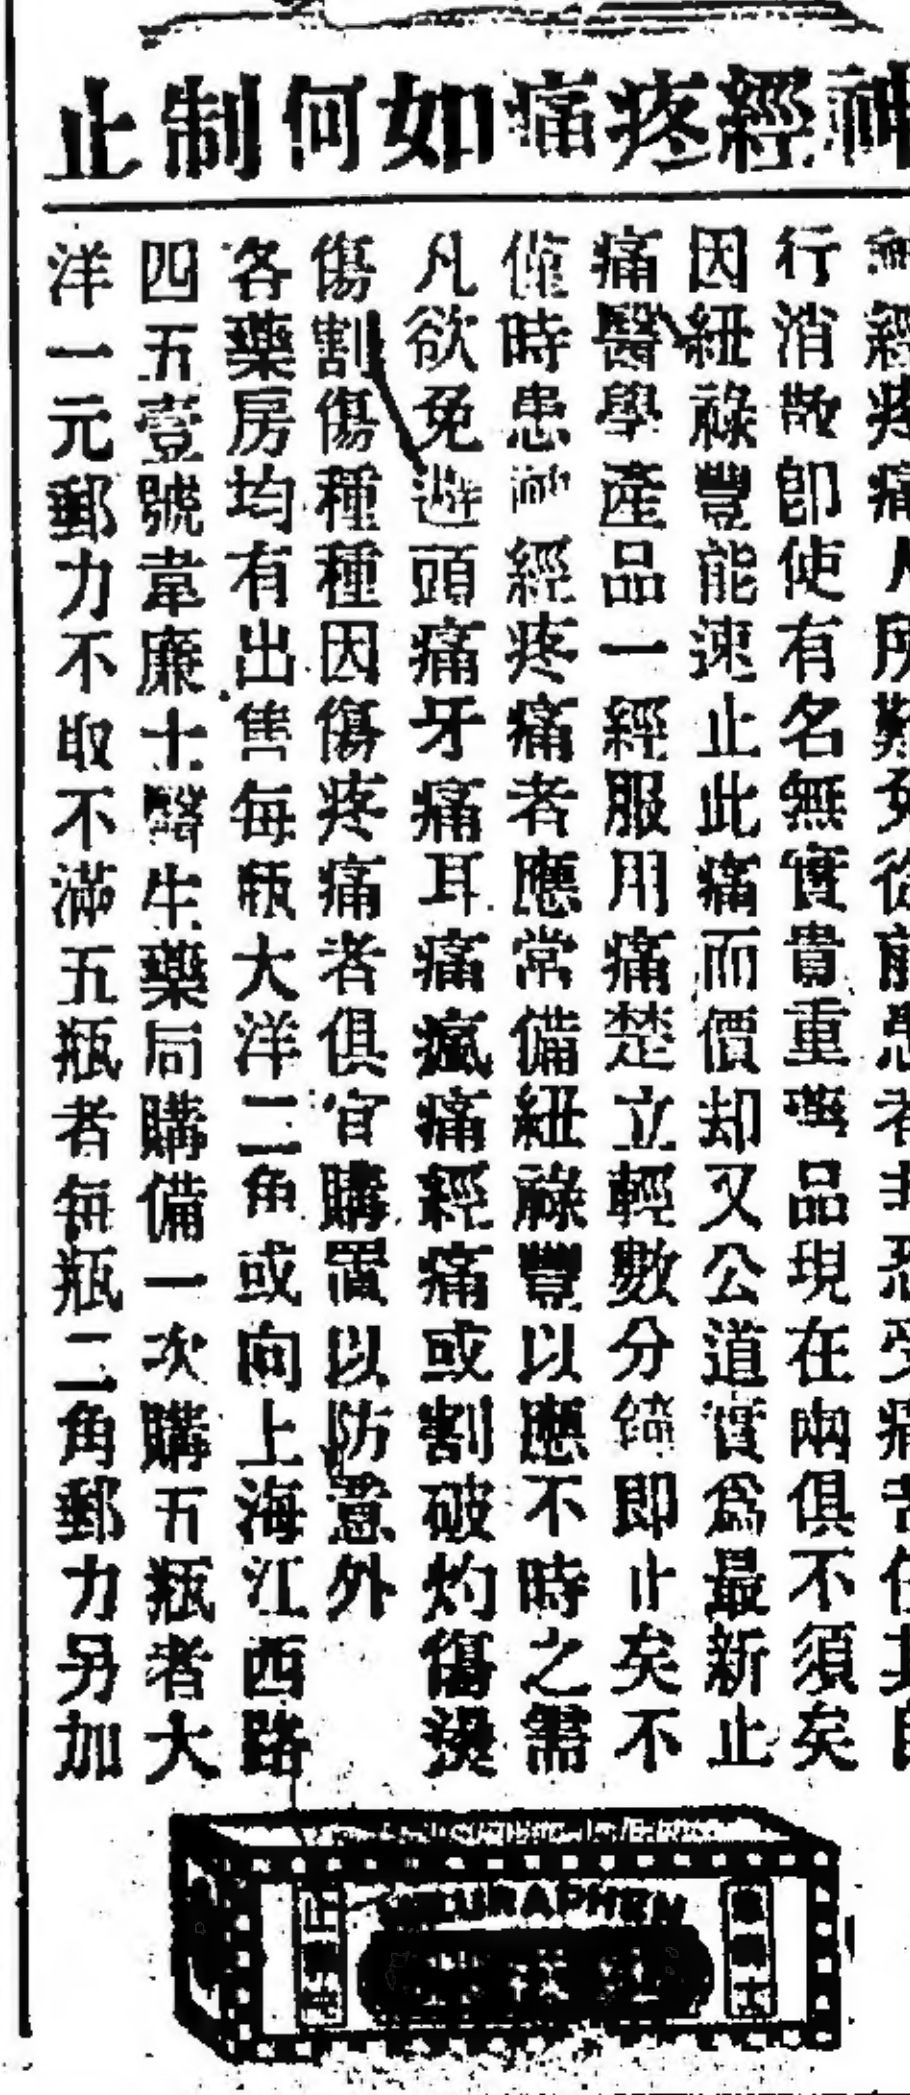 神經疼痛如何制止
神經疼痛人所難免從前患者非忍受痛苦任其自
行消散即使有名無實貴重藥品現在兩俱不須矣
因紐祿豐能速止此痛而價却又公道實爲最新止
痛醫學產品一經服用痛楚立輕數分鐘即止矣不
時患神經疼痛者應常備紐祿豐以應不時之需
凡欲免避頭痛牙痛耳痛瘋痛經痛或割破灼傷燙
傷割傷種種因傷疼痛者俱宜購置以防意外
各藥房均有出售每瓶大洋二角或向上海江西路
四五壹號韋廉士醫生藥局購備一次購五瓶者大
洋一元郵力不取不滿五瓶者每瓶二角郵力另加
NEURAPHEN